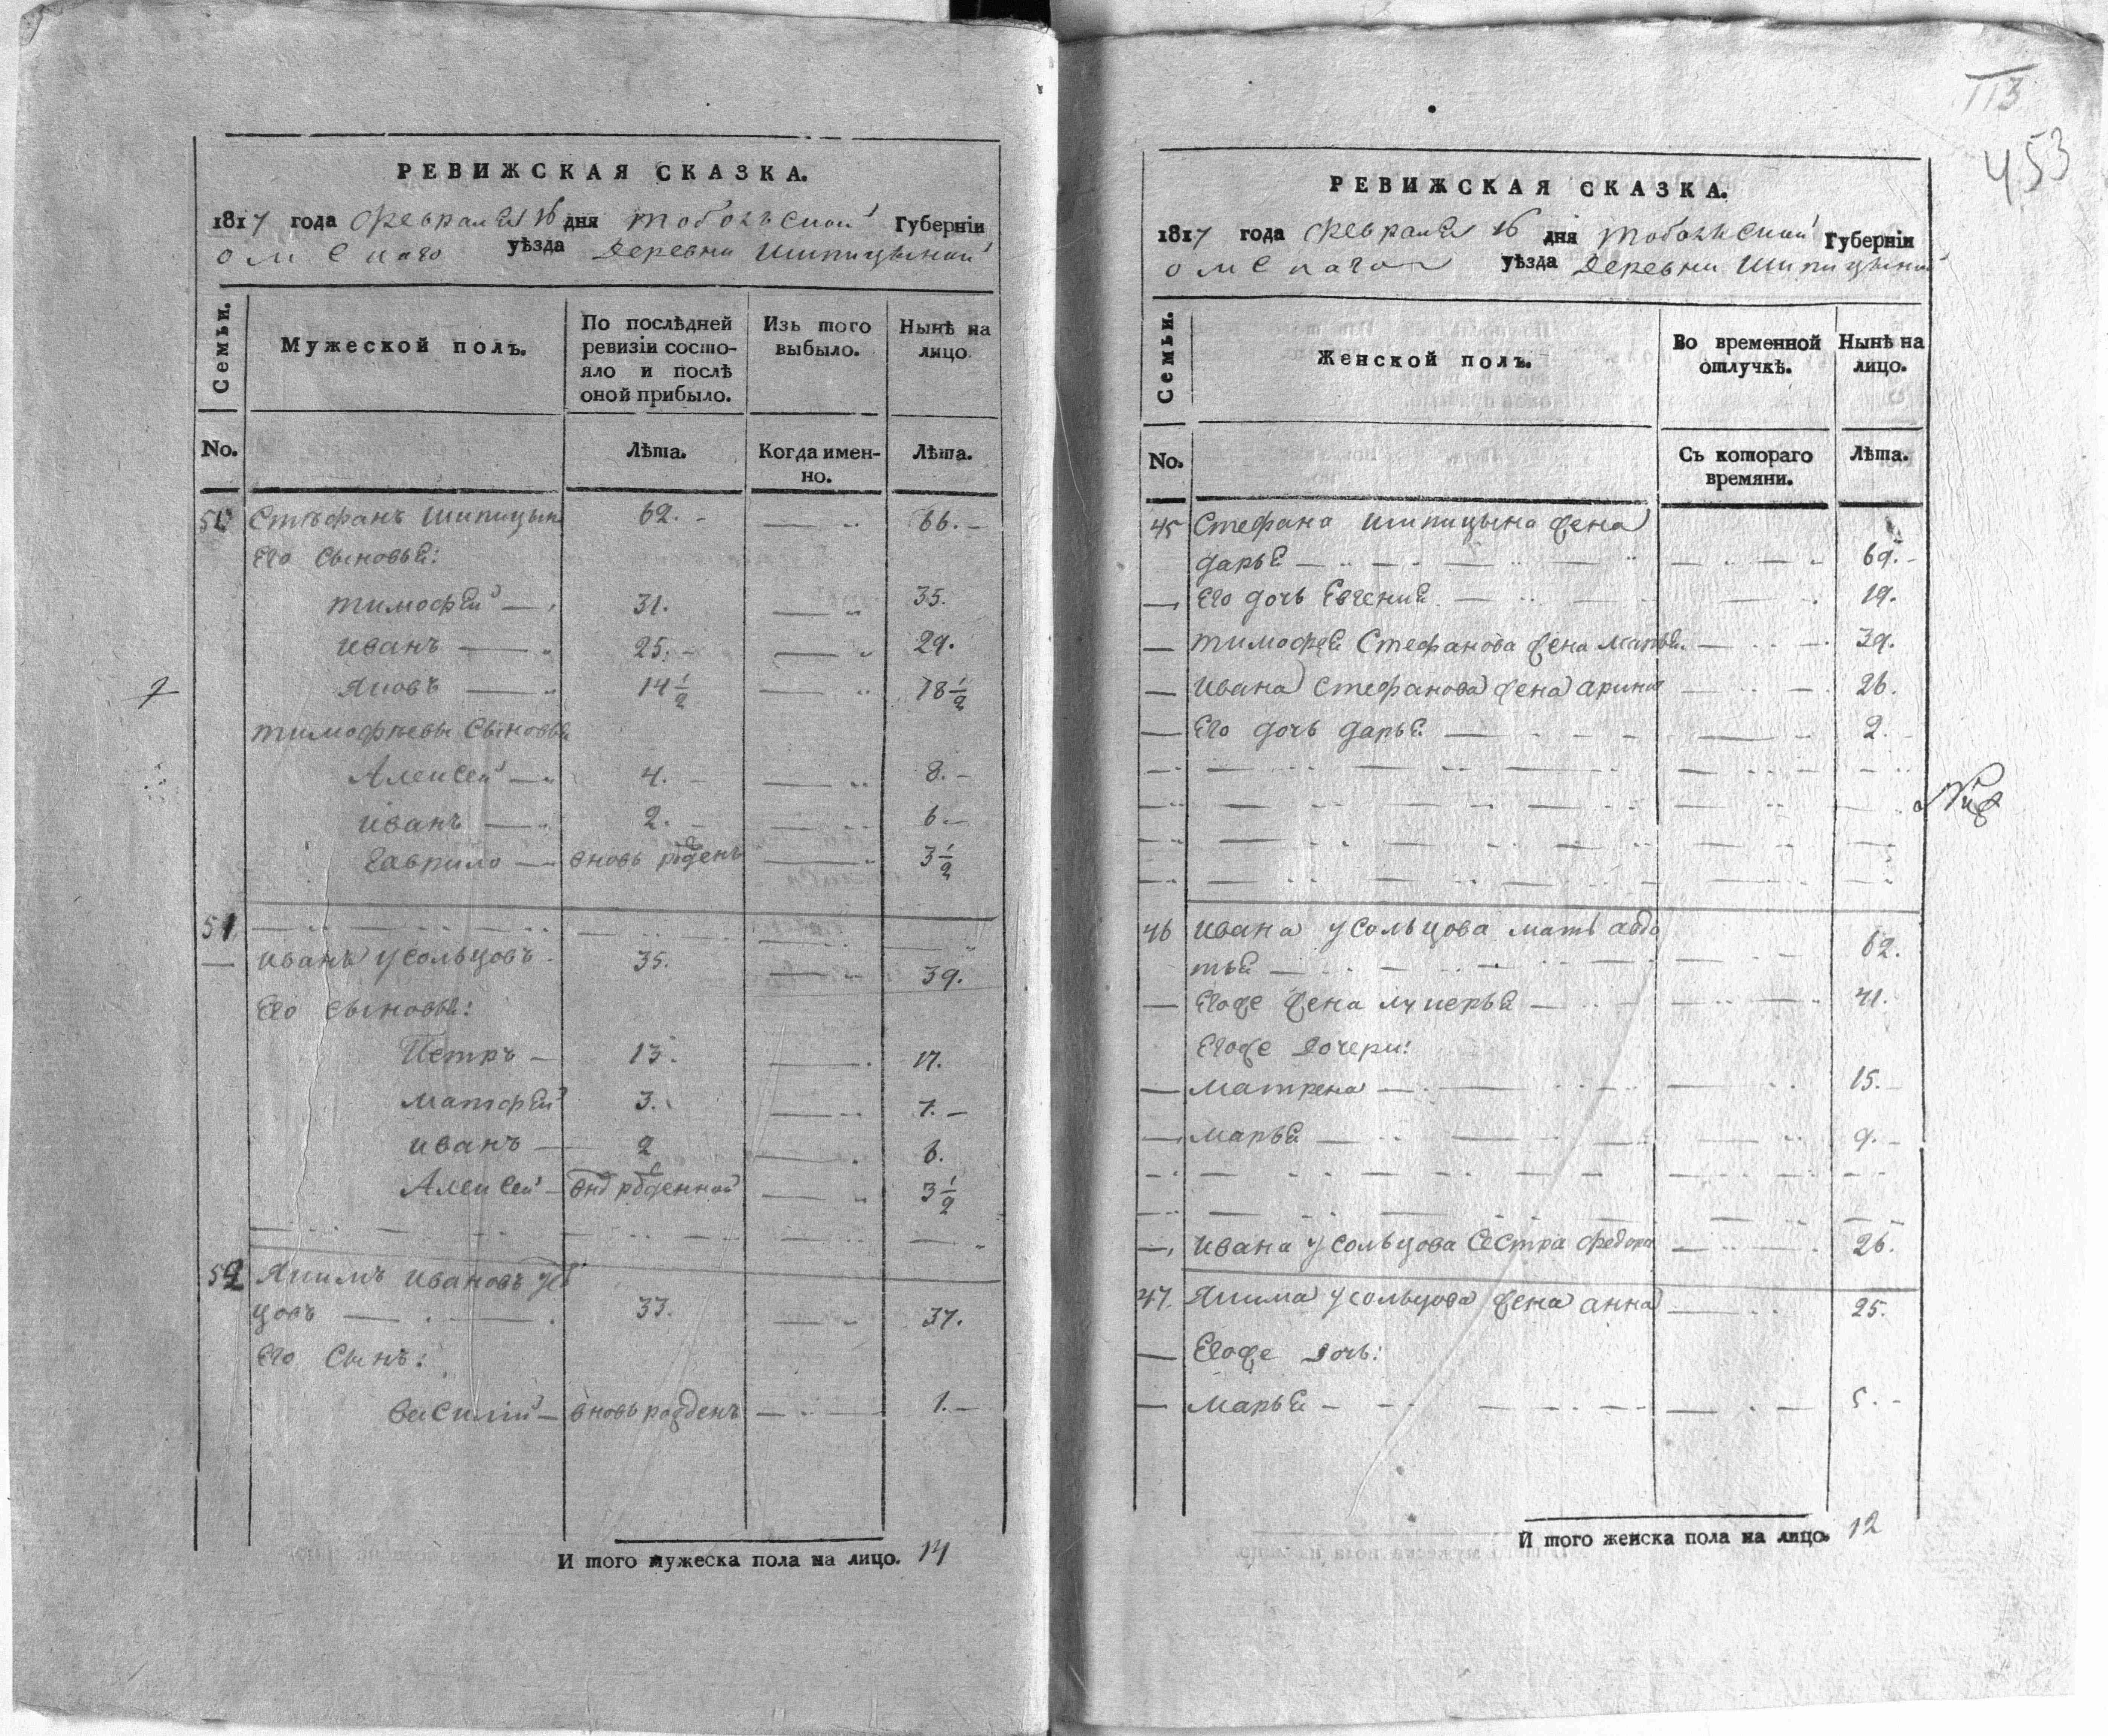 РЕВИЖСКАЯ СКАЗКА.
1817 года Февраля 16 дня Тобольской Губерніи
Омскаго уѣзда Деревни Шипицыной
Семьи.
Мужеской полъ.
По послѣдней ревизіи состояло и послѣ оной прибыло.
Изъ того выбыло.
Нынѣ на лицо
No.
Лѣта.
Когда именно.
Лѣта.
50 Стефанъ Шипицын 62. 66.
Его Сыновья:
Тимофей 31. 35.
Иванъ 25. 29.
Яковъ 14 1/2 18 1/2
Тимофѣевы Сыновья
Алексей 4. 8.
Иванъ 2. 6.
Гаврило вновь рожденъ 3 1/2
51
Иванъ Усольцовъ 35. 39.
Его Сыновья:
Петръ 13. 17.
Матфей 3. 7.
Иванъ 2 6.
Алексей рожденной 3 1/2
52 Якимъ Ивановъ
цовъ 33. 37.
Его Сынъ:
Василій вновь рожденъ 1.
И того мужеска пола на лицо. 14
113
453
РЕВИЖСКАЯ СКАЗКА.
1817 года Февраля 16 дня Тобольской Губерніи
Омскаго уѣзда Деревни Шипицыной
Семьи.
Женской полъ.
Во временной отлучкѣ.
Нынѣ на лицо.
No.
Съ котораго времяни.
Лѣта.
45 Стефана Шипицына жена
Дарья 69.
Его дочь Евгения 19.
Тимофея Стефанова жена Марья 39.
Ивана Стефанова жена Арина 26.
Его дочь Дарья 2.
46 Ивана Усольцова мать Авдо
тья 62.
Егоже жена Лукерья 41.
Егоже Дочери:
Матрена 15.
Марья 9.
Ивана Усольцова Сестра Федора 26.
47. Якима Усольцова жена Анна 25.
Егоже Дочь:
Марья 5.
И того женска пола на лицо. 12